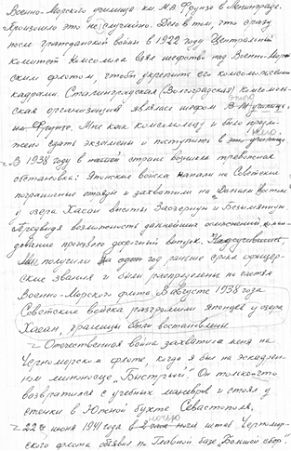 Военно-Морского училища им. М.В. Фрунзе в Ленинграде.
Произошло это не случайно. Дело в том, что сразу
после гражданской войны в 1922 году Центральный
комитет комсомола взял шефство над Военно-Мор-
ским флотом, чтобы укрепить его комсомольскими
кадрами. Сталинградская (Волгоградская) комсомоль-
ская организация являлась шефом В-М училища
им. Фрунзе. Мне как комсомольцу и было предло-
жено сдать экзамены и поступить в это училище.
В 1938 году в нашей стране возникла тревожная
обстановка: Японские войска напали на Советскую
пограничную заставу и захватили на Дальнем востоке
у озера Хасан высоты Заозерную и Безымянную.
Предвидя возможность дальнейших осложнений, коман-
дование произвело досрочный выпуск.
Мы получили на год раньше срока офицер-
ские звания и были распределены по частям
Военно-Морского флота. В августе 1938 года
Советские войска разгромили японцев у озера
Хасан, границы были восстановлены.
Отечественная война захватила меня на
Черноморском флоте, когда я был на эскадрен-
ном миноносце "Быстрый". Он только что
возвратился с учебных маневров и стоял у
стенки в Южной бухте Севастополя.
22 июня 1941 года в ночью штаб Черномор-
ского флота объявил по Главной базе "Большой сбор".